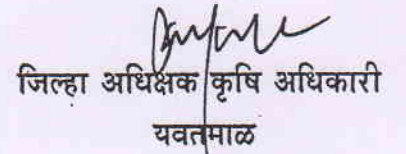 जिल्हा अधिक्षक कृषि अधिकारी
यवतमाळ